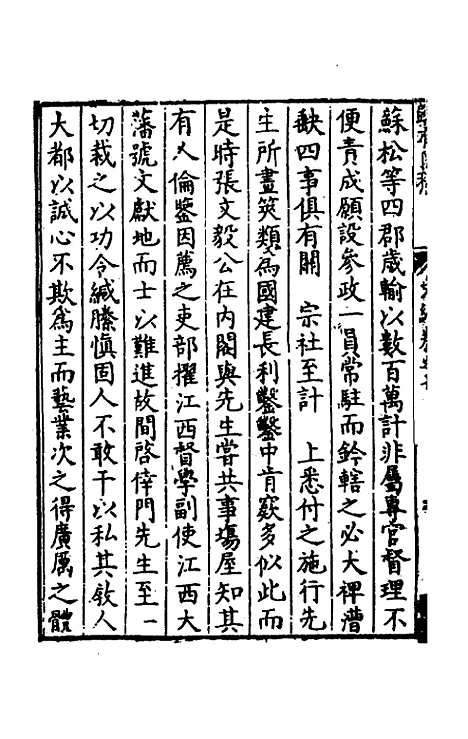 蘇松等四郡歲輸以數百萬計非屬專官督理不
便責成願設參政一員常駐而鈐轄之必大裨漕
缺四事俱有關　宗社至計　上悉付之施行先
生所畫筴類爲國建長利鑿鑿中肯窽多似此而
是時張文毅公在內閣與先生嘗共事塲屋知其
有人倫鑒因薦之吏部擢江西督學副使江西大
藩號文獻地而士以難進故間啓倖門先生至一
切裁之以功令緘縢愼固人不敢干以私其敎人
大都以誠心不欺爲主而藝業次之得廣厲之體